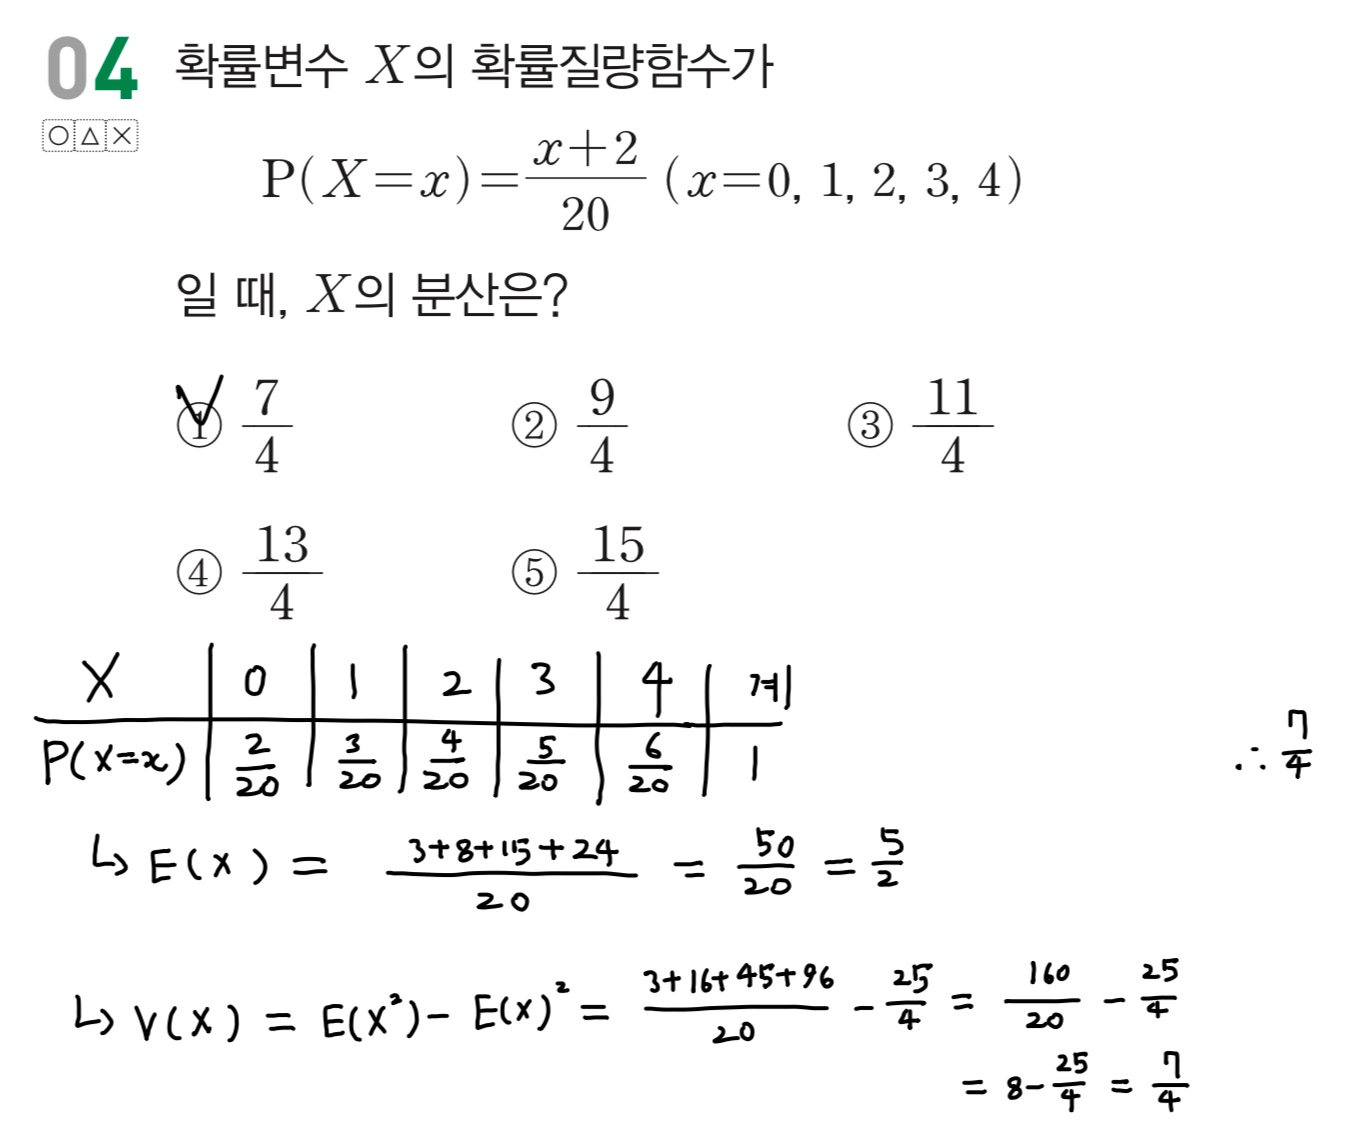 04 확률변수 X의 확률질량함수가
○ △ ×
P(X=x)=\frac{x+2}{20} (x=0, 1, 2, 3, 4)
일 때, X의 분산은?
① \frac{7}{4} ② \frac{9}{4} ③ \frac{11}{4}
④ \frac{13}{4} ⑤ \frac{15}{4}
X | 0 | 1 | 2 | 3 | 4 | 계
P(X=x) | \frac{2}{20} | \frac{3}{20} | \frac{4}{20} | \frac{5}{20} | \frac{6}{20} | 1
∴ \frac{7}{4}
↳ E(X) = \frac{3+8+15+24}{20} = \frac{50}{20} = \frac{5}{2}
↳ V(X) = E(X²) - E(X)² = \frac{3+16+45+96}{20} - \frac{25}{4} = \frac{160}{20} - \frac{25}{4}
= 8 - \frac{25}{4} = \frac{7}{4}